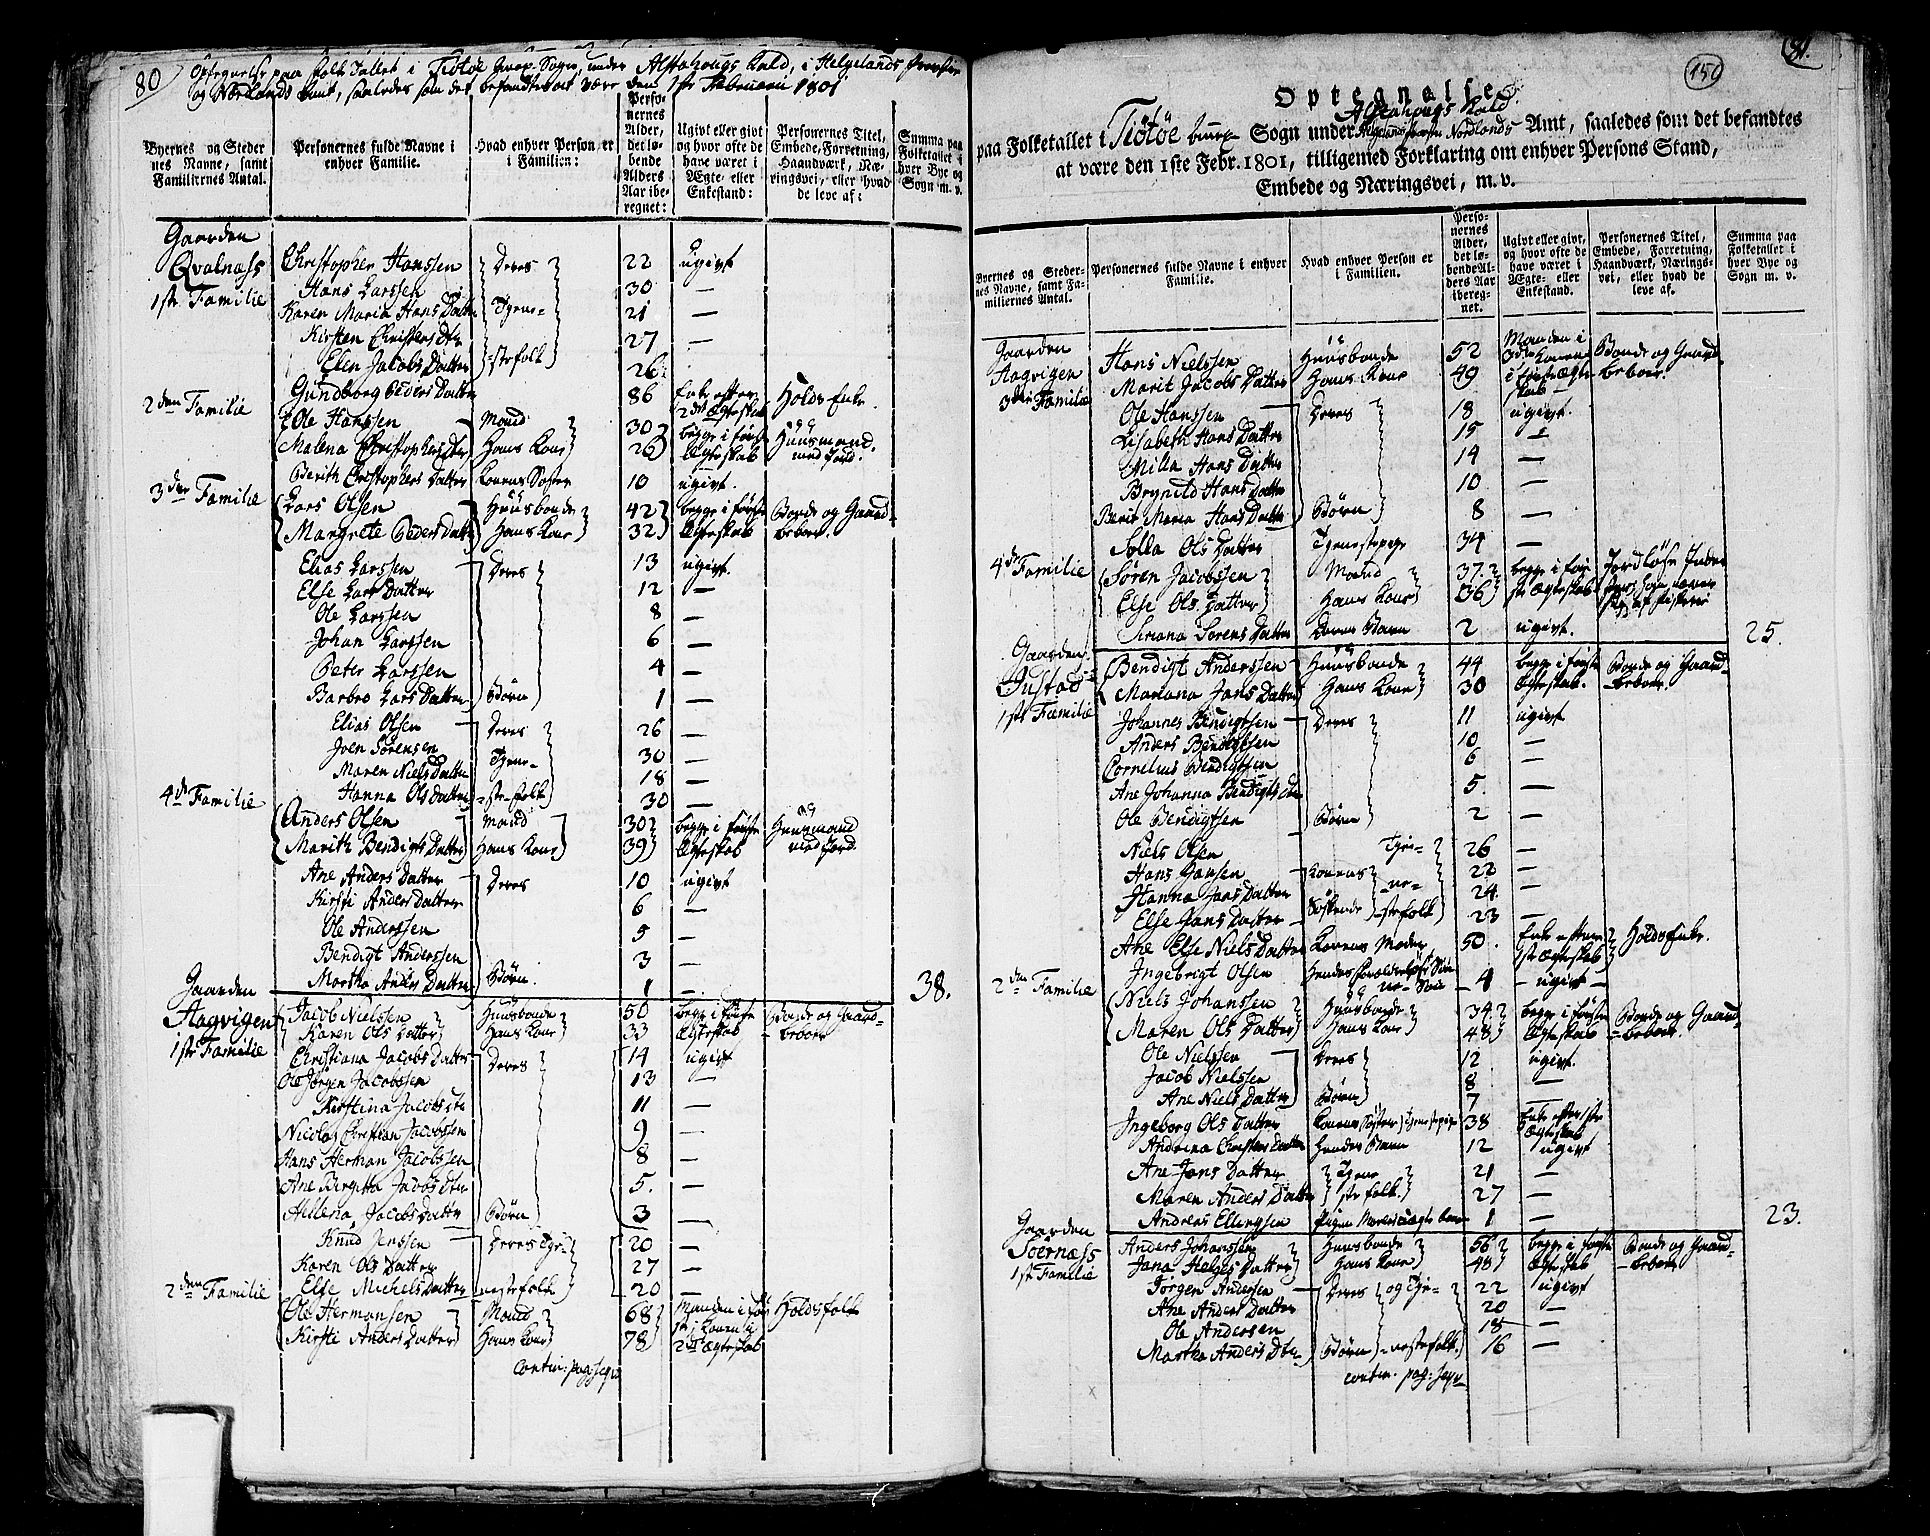 80
Optegnelse paa Folke Tallet i Tiötöe Sogn under Alstahougs Kald, i Helgelands
og Nordlands Amt, saaledes som det befandtes at være den 1ste Februarii 1801
Byernes og Steder nes Navne, samt Familiernes Antal. Personernes fulde Navne i enhver Familie. Hvad enhver Person er i Familien: Perso- nernes Alder, det lø- bende Alders Aar ibe- regnet: Ugivt eller givt og hvor ofte de have været i Ægte- eller Enkestand: Personernes Titel, Embede, Forretning, Haandværk, Næ- ringsvei, eller hvad de leve af: Summa paa Folketallet i hver Bye og Sogn m. v.
Gaarden
Qvalnæss Christopher Hanssen Deres 22 ugivt
1ste Familie Hans Larssen 30 —
Karen Maria Hans Datter Tjene- 21 —
Kirsten Christens Dtr 27 —
Elen Jacobs Datter =stefolk 26
Gundborg Peders Datter 86 Enke efter 2det Ægteskab Holds Enke.
2den Familie Ole Hanssen Mand 30 begge i første Huusmand
Malena Christophers Dtr Hans Kone 26 Ægteskab med Jord.
Berith Christophers Datter Konens Søster 10 ugivt.
3die Familie Lars Olsen Huusbonde 42 begge i første Bonde og Gaard
Margrete Peders Datter Hans Kone 32 Ægteskab beboer.
Elias Larssen Deres 13 ugivt.
Else Lars Datter 12 —
Ole Larssen 8 —
Johan Larssen 6 —
Peter Larssen 4 —
Barbro Lars Datter Børn 1 —
Elias Olsen Deres 26 —
Joen Sørensen 30 —
Maren Niels Datter Tjene- 18 —
Hanna Ols Datter =stefolk 30 —
4de Familie Anders Olsen Mand 30 begge i første Huusmand
Marith Bendigts Datter Hans Kone 39 Ægteskab med Jord.
Ane Anders Datter Deres 10 ugivt
Kirsti Anders Datter 6 —
Ole Anderssen 5 —
Bendigt Anderssen 3 —
Martha Anders Datter Børn. 1 — 38.
Gaarden
Hagvigen Jacob Nielssen Huusbonde 50 begge i første Bonde og Gaard-
Karen Ols Datter Hans Kone 33 Ægteskab -beboer
1ste Familie Christiana Jacobs Datter Deres 14 ugivt
Ole Jørgen Jacobssen 13 —
Kirstina Jacobs Dtr 11 —
Nicolay Christian Jacobssen 9 —
Hans Herman Jacobssen 8 —
Ane Birgitta Jacobs Dtr 5. —
Hellena Jacobs Datter Børn 3 —
Knud Jenssen Deres Tje- 20 —
Karen Ols Datter 27 —
Else Michels Datter nestefolk 20 —
2den Familie Ole Hermansen Mand 68 Manden i før Holdsfolk
Kirsti Anders Datter Hans Kone 78 ste, Konen i 2det Ægteskab
contin: pag: seqv
81.
150
Optegnelse
paa Folketallet i Tiötöe Sogn under Alstahougs Kald Nordlands Amt, saaledes som det befandtes
at være den 1ste Febr. 1801, tilligemed Forklaring om enhver Persons Stand,
Embede og Næringsvei, m. v.
Byernes og Steder- nes Navne, samt Fa- miliernes Antal. Personernes fulde Navne i enhver Familie. Hvad enhver Person er i Familien. Perso- nernes Alder, det lø- bende Al- ders Aar ibereg- net: Ugivt eller givt, og hvor ofte de have været i Ægte- eller Enkestand. Personernes Titel, Embede, Forretning, Haandværk, Nærings- vei, eller hvad de leve af. Summa paa Folketallet i hver Bye og Sogn m. v.
Gaarden Hans Nielssen Huusbonde 52 Manden i Bonde og Gaard
Hagvigen Marit Jacobs Datter Hans Kone 49 beboer.
3die Familie Ole Hanssen Deres 18 ugivt.
Lisabeth Hans Datter 15 —
Milla Hans Datter 14 —
Brynild Hans Datter 10 —
Berit Maria Hans Datter Børn 8 —
Solla Ols Datter Tjenestepige 34 —
4de Familie Søren Jacobssen Mand 37. begge i før- Jordløse Inder
Else Ols Datter Hans Kone 36 ste Ægteskab
Siriana Sørens Datter Deres Barn 2 ugivt. 25.
Gaarden
Justad Bendigt Anderssen Huusbonde 44 begge i første Bonde og Gaard-
Mariana Jans Datter Hans Kone 30 Ægteskab. -beboer.
1ste Familie Johannes Bendigtsen Deres 11 ugivt
Anders Bendigtsen 10 —
Cornelius Bendigtsen 6 —
Ane Johanna Bendigts Dtr 5. —
Ole Bendigtsen Børn 2 —
Niels Olsen Tjene- 26 —
Hans Jansen Konens 22 —
Hanna Jans Datter -ne- 24 —
Else Jans Datter Søskende -stefolk 23 —
Ane Else Niels Datter Konens Moder 50. Enke efter 1ste Ægteskab Holds Enke.
Ingebrigt Olsen 4 — ugivt —
2den Familie Niels Johanssen Huusbonde 34 begge i første Bonde og Gaard-
Maren Ols Datter Hans Kone 48 Ægteskab -beboer.
Ole Nielssen Deres 12 ugivt.
Jacob Nielssen 8 —
Ane Niels Datter Børn 7 —
Ingeborg Ols Datter Konens Søster Tjenestepige 38 Enke efter 1ste Ægteskab
Andrina Christens Datter Hendes Barn 12 ugivt
Ane Jans Datter Tjene 21 —
Maren Anders Datter stefolk. 27 —
Andreas Ellingsen Pigen Marens uægte barn 1 — 23.
Gaarden
Soernæss Anders Johanssen Huusbonde 56 begge i første Bonde og Gaard-
Jana Helges Datter Hans Kone 48 Ægteskab -beboer
1ste Familie Jørgen Andersen Deres og Tje- 22 ugivt
Ane Anders Datter 20 —
Ole Andersen 18 —
Martha Anders Dtr Børn -nestefolk. 16 —
contin. pag: seqv